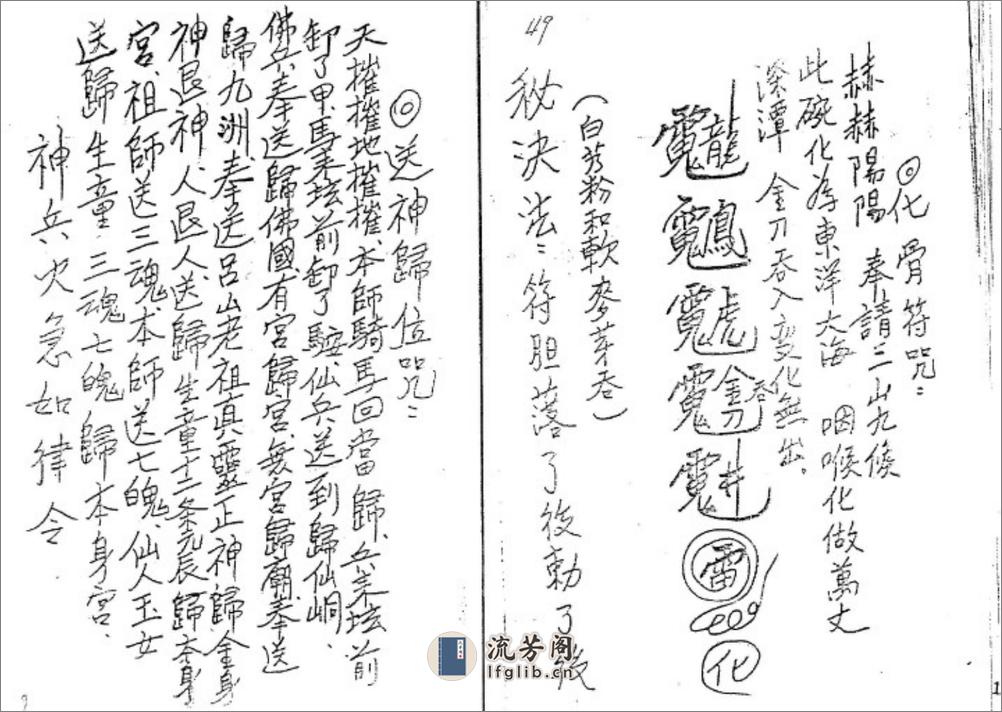 ◎化骨符咒：
赫赫陽陽 奉請三山九候
此碗化為東洋大海 咽喉化做萬丈
深潭 金刀吞入变化無出。
龍
鳳
虎
金刀 吞
井
雷
化
（白芳粉和軟麥芽吞）
秘決法：符胆落了後勅了後
49
◎送神歸位咒：
天摧摧地摧摧、本師騎馬回當歸、兵來坛前
卸了甲、馬來坛前卸了鞍、仙兵送到歸仙峒
佛兵奉送歸佛國、有宮歸宮、無宮歸廟、奉送
歸九洲、奉送呂山老祖真靈正神歸金身
神退神、人退人、送歸生童十二条元辰歸本身
宮、祖師送三魂、本師送七魄、仙人玉女
送歸生童、三魂七魄歸本身宮、
神兵火急如律令
流芳阁
lfglib.cn
1